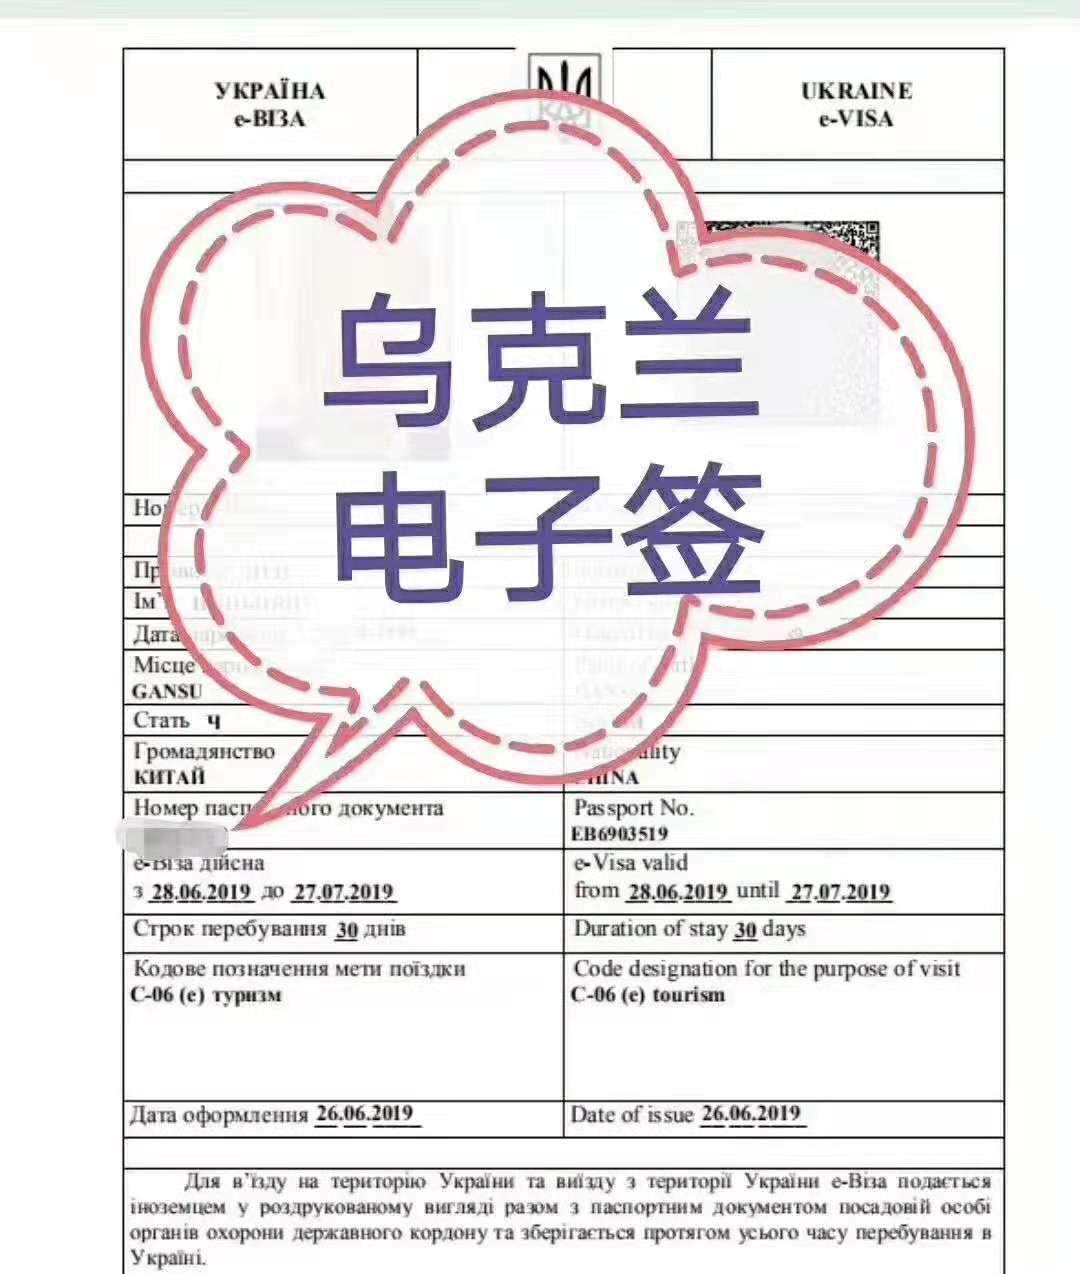 УКРАЇНА
е-ВІЗА
UKRAINE
e-VISA
乌克兰
电子签
Дата
Місце
GANSU
Стать Ч
Громадянство
КИТАЙ
CHINA
Номер документа
Passport No.
EB6903519
е-Віза дійсна
з 28.06.2019 до 27.07.2019
e-Visa valid
from 28.06.2019 until 27.07.2019
Строк перебування 30 днів
Duration of stay 30 days
Кодове позначення мети поїздки
C-06 (e) туризм
Code designation for the purpose of visit
C-06 (e) tourism
Дата оформлення 26.06.2019
Date of issue 26.06.2019
Для в’їзду на територію України та виїзду з території України е-Віза подається
іноземцем у роздрукованому вигляді разом з паспортним документом посадовій особі
органів охорони державного кордону та зберігається протягом усього часу перебування в
Україні.